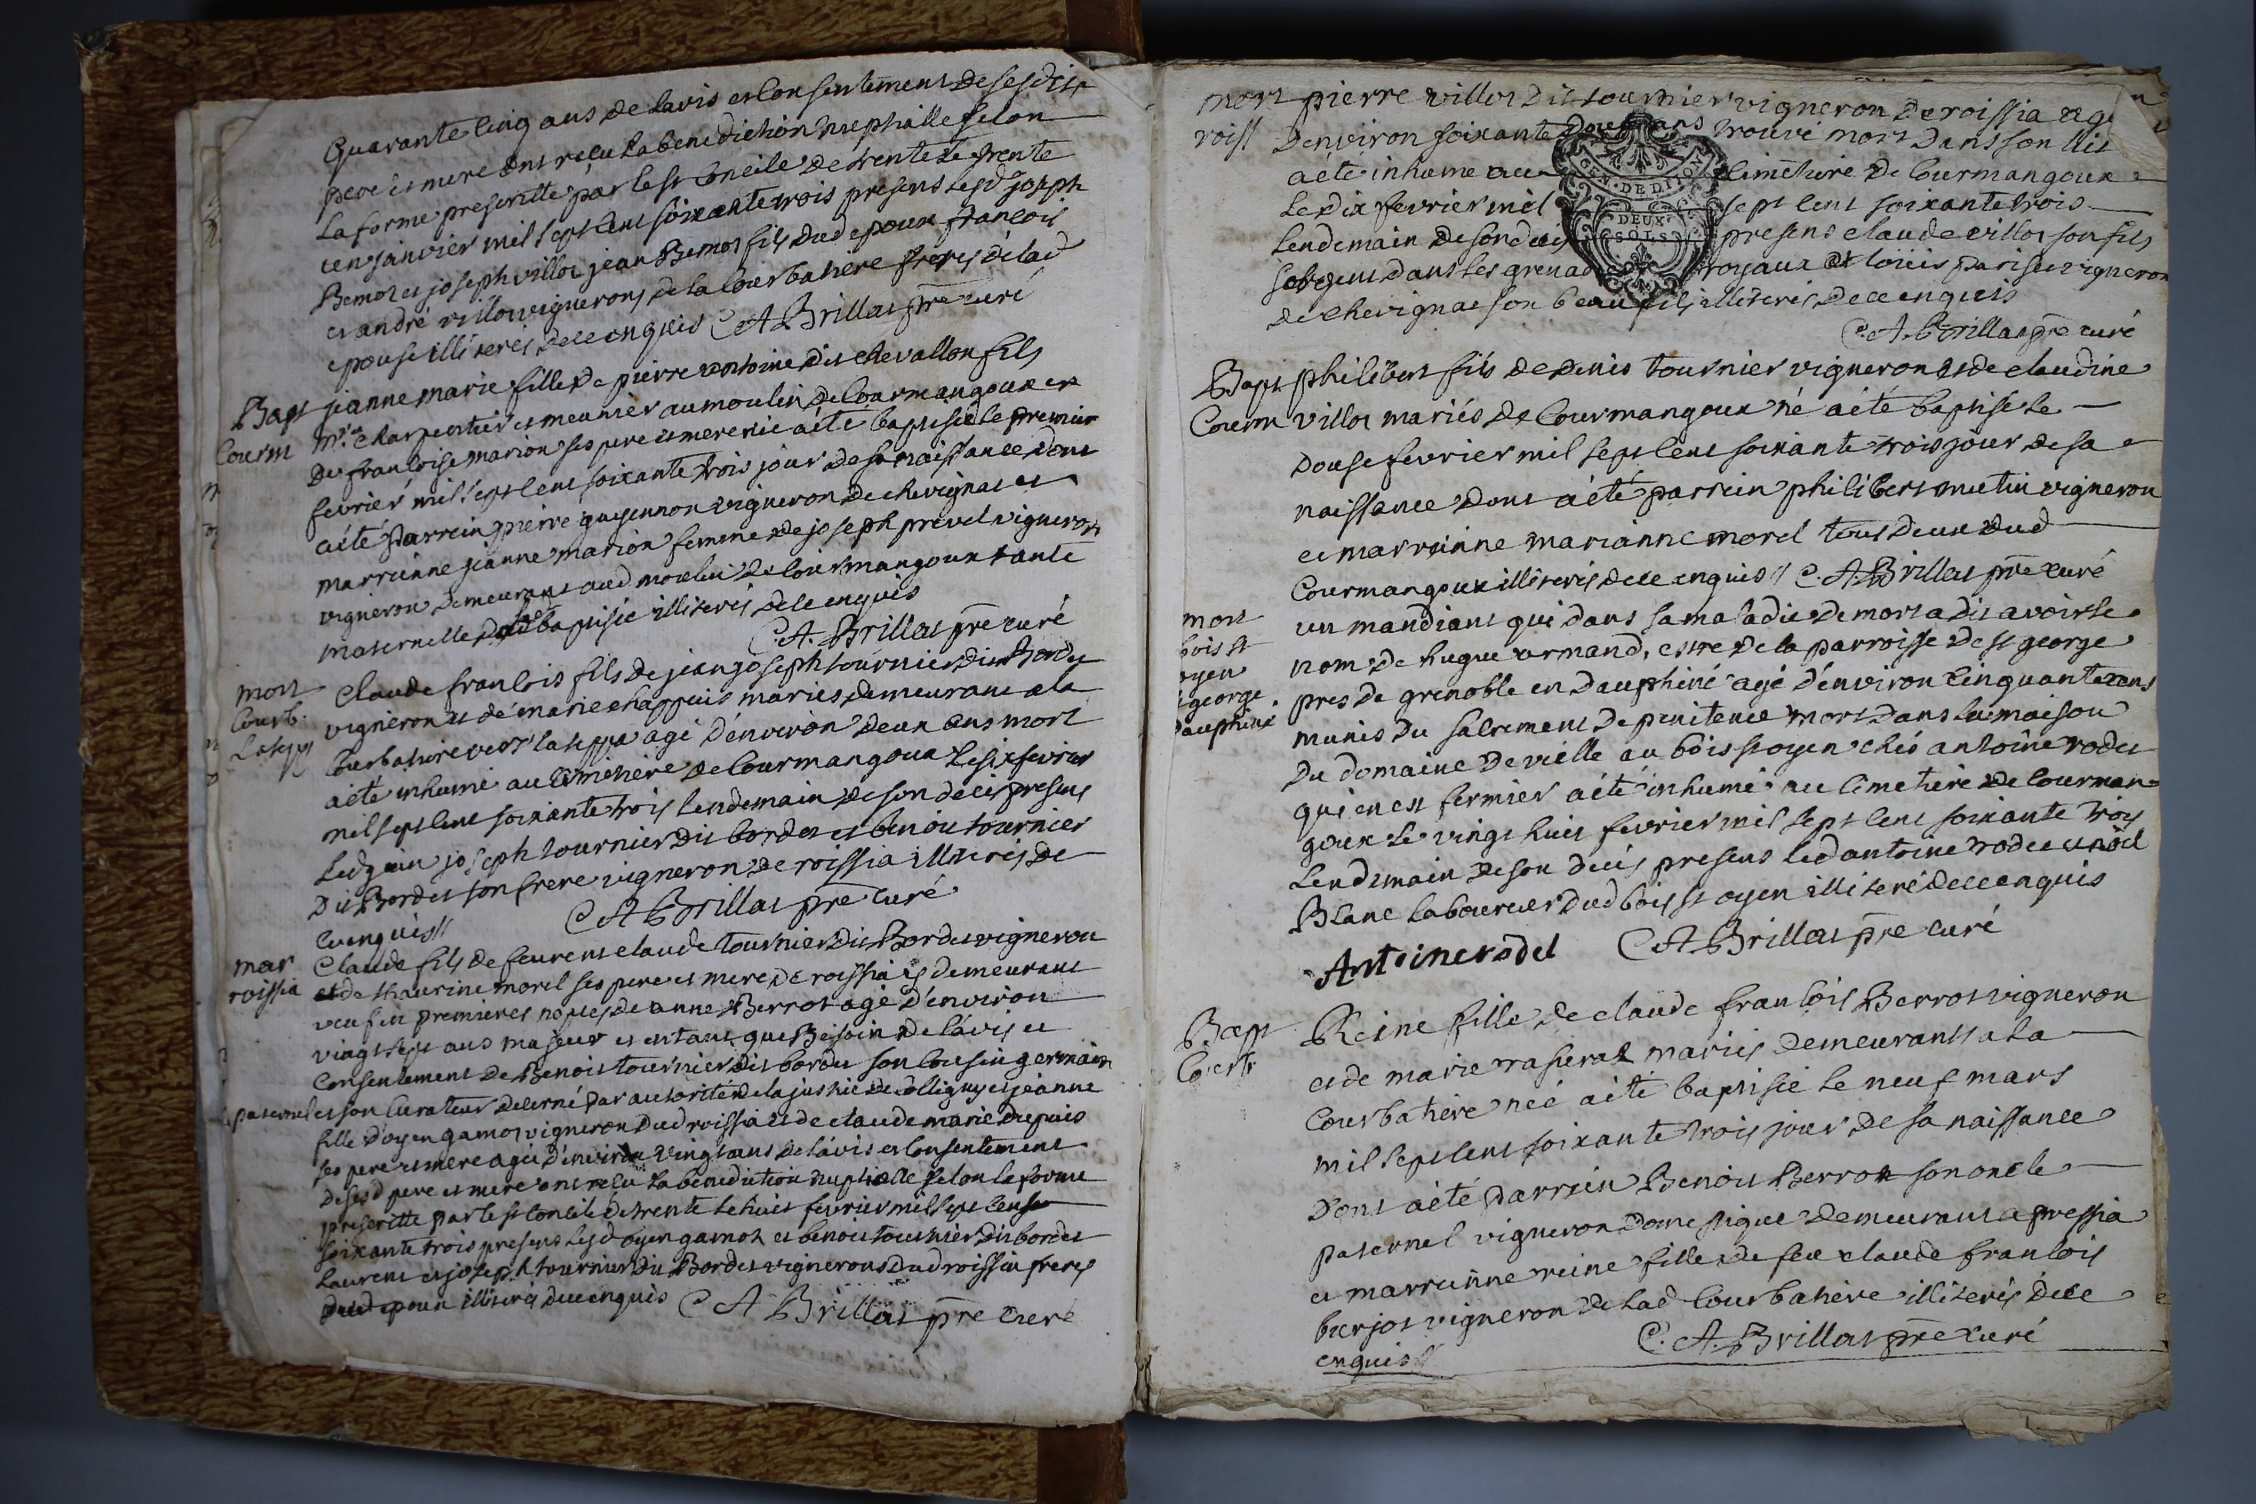 quarante cinq ans de lavis et consentement de sesdits
pere et mere ont reçu la benediction nuptialle selon
la forme prescritte par le st concile de trente le trente
un janvier mil sept cent soixante trois presens lesd joseph
Bernot et joseph villot jean Bernot fils dud epoux françois
et andré villot vignerons de la Courbatiere freres de lad
epouse illiterés de ce enquis C A Brillat pre curé
Bapt
Courm
jeanne marie fille de pierre antoine dit chevallon fils
me charpentier et meunier au moulin de Courmangoux et
de françoise marion ses pere et mere née a été baptisée le premier
fevrier mil sept cent soixante trois jour de sa naissance dont
a été parrein pierre guyennon vigneron de chevignat et
marreinne jeanne marion femme de joseph prevel vigneron
vigneron demeurant aud moulin de Courmangoux tante
maternelle de la baptisée illiterés de ce enquis
C. A. Brillat pre curé
mort
Courb.
Lateppe
Claude françois fils de jean joseph tournier dit Bordet
vigneron et de marie chappuis mariés demeurant a la
Courbatiere vers lateppa agé d'environ deux ans mort
a été inhumé au cimetiere de Courmangoux le six fevrier
mil sept cent soixante trois lendemain de son décés presens
led jean joseph tournier dit bordet et benoit tournier
dit Bordet son frere vigneron de roissia illiterés de
ce enquis C A Brillat pre curé
mar
roissia
Claude fils de feu rent claude tournier dit Bordet vigneron
et de thaurine morel ses pere et mere de roissia y demeurant
veuf en premieres noces de anne Berrot agé d'environ
vingt sept ans majeur et en tant que Besoin de lavis et
consentement de Benoit tournier dit bordet son cousin germain
paternel et son curateur decerné par autorité de la justice de colligny et jeanne
fille d'oyen gamot vigneron dud roissia et de claude marie dupuis
ses pere et mere agée d'environ vingt ans de lavis et consentement
de sesd pere et mere ont reçu la benediction nuptialle selon la forme
prescritte par le st concile de trente le huit fevrier mil sept cent
soixante trois presens lesd oyen gamot et benoit tournier dit bordet
Laurent et joseph tournier dit Bordet vignerons dud roissia freres
dud epoux illiterés de ce enquis C A Brillat pre curé
mort
roiss
pierre villot dit tournier vigneron de roissia agé
d'environ soixante douze ans trouvé mort dans son lit
a été inhumé au cimetiere de Courmangoux
le dix fevrier mil sept cent soixante trois
lendemain de son decés presens claude villot son fils
sergent dans les grenadiers royaux et louis parisset vigneron
de chevignat son beau fils illiterés de ce enquis
C. A. Brillat pre curé
GEN. DE DIJON
DEUX
SOLS
Bapt
Courm
philibert fils de denis tournier vigneron et de claudine
villot mariés de Courmangoux né a été baptisé le
douse fevrier mil sept cent soixante trois jour de sa
naissance dont a été parrein philibert mutin vigneron
et marreinne marianne morel tous deux dud
Courmangoux illiterés de ce enquis C. A. Brillat pre curé
mort
bois st
oyen
st george
dauphiné
un mandiant qui dans sa maladie de mort a dit avoir le
nom de hugue armand, estre de la parroisse de st george
pres de grenoble en dauphiné agé d'environ cinquante ans
munis du sacrement de penitence mort dans la maison
du domaine de vielle au bois st oyen chés antoine rodet
qui en est fermier a été inhumé au cimetiere de Courman=
goux le vingt huit fevrier mil sept cent soixante trois
lendemain de son decés presens led antoine rodet et noël
Blanc laboureur dud bois st oyen illiteré de ce enquis
Antoine rodet C A Brillat pre curé
Bapt
Courb
Reine fille de claude françois Berrot vigneron
et de marie maserat mariés demeurants a la
Courbatiere née a été baptisée le neuf mars
mil sept cent soixante trois jour de sa naissance
dont a été parrein Benoit Berrot son oncle
paternel vigneron domestique demeurant a pressia
et marreinne reine fille de feu claude françois
burjot vigneron de lad Courbatiere illiterés de ce
enquis C. A. Brillat pre curé